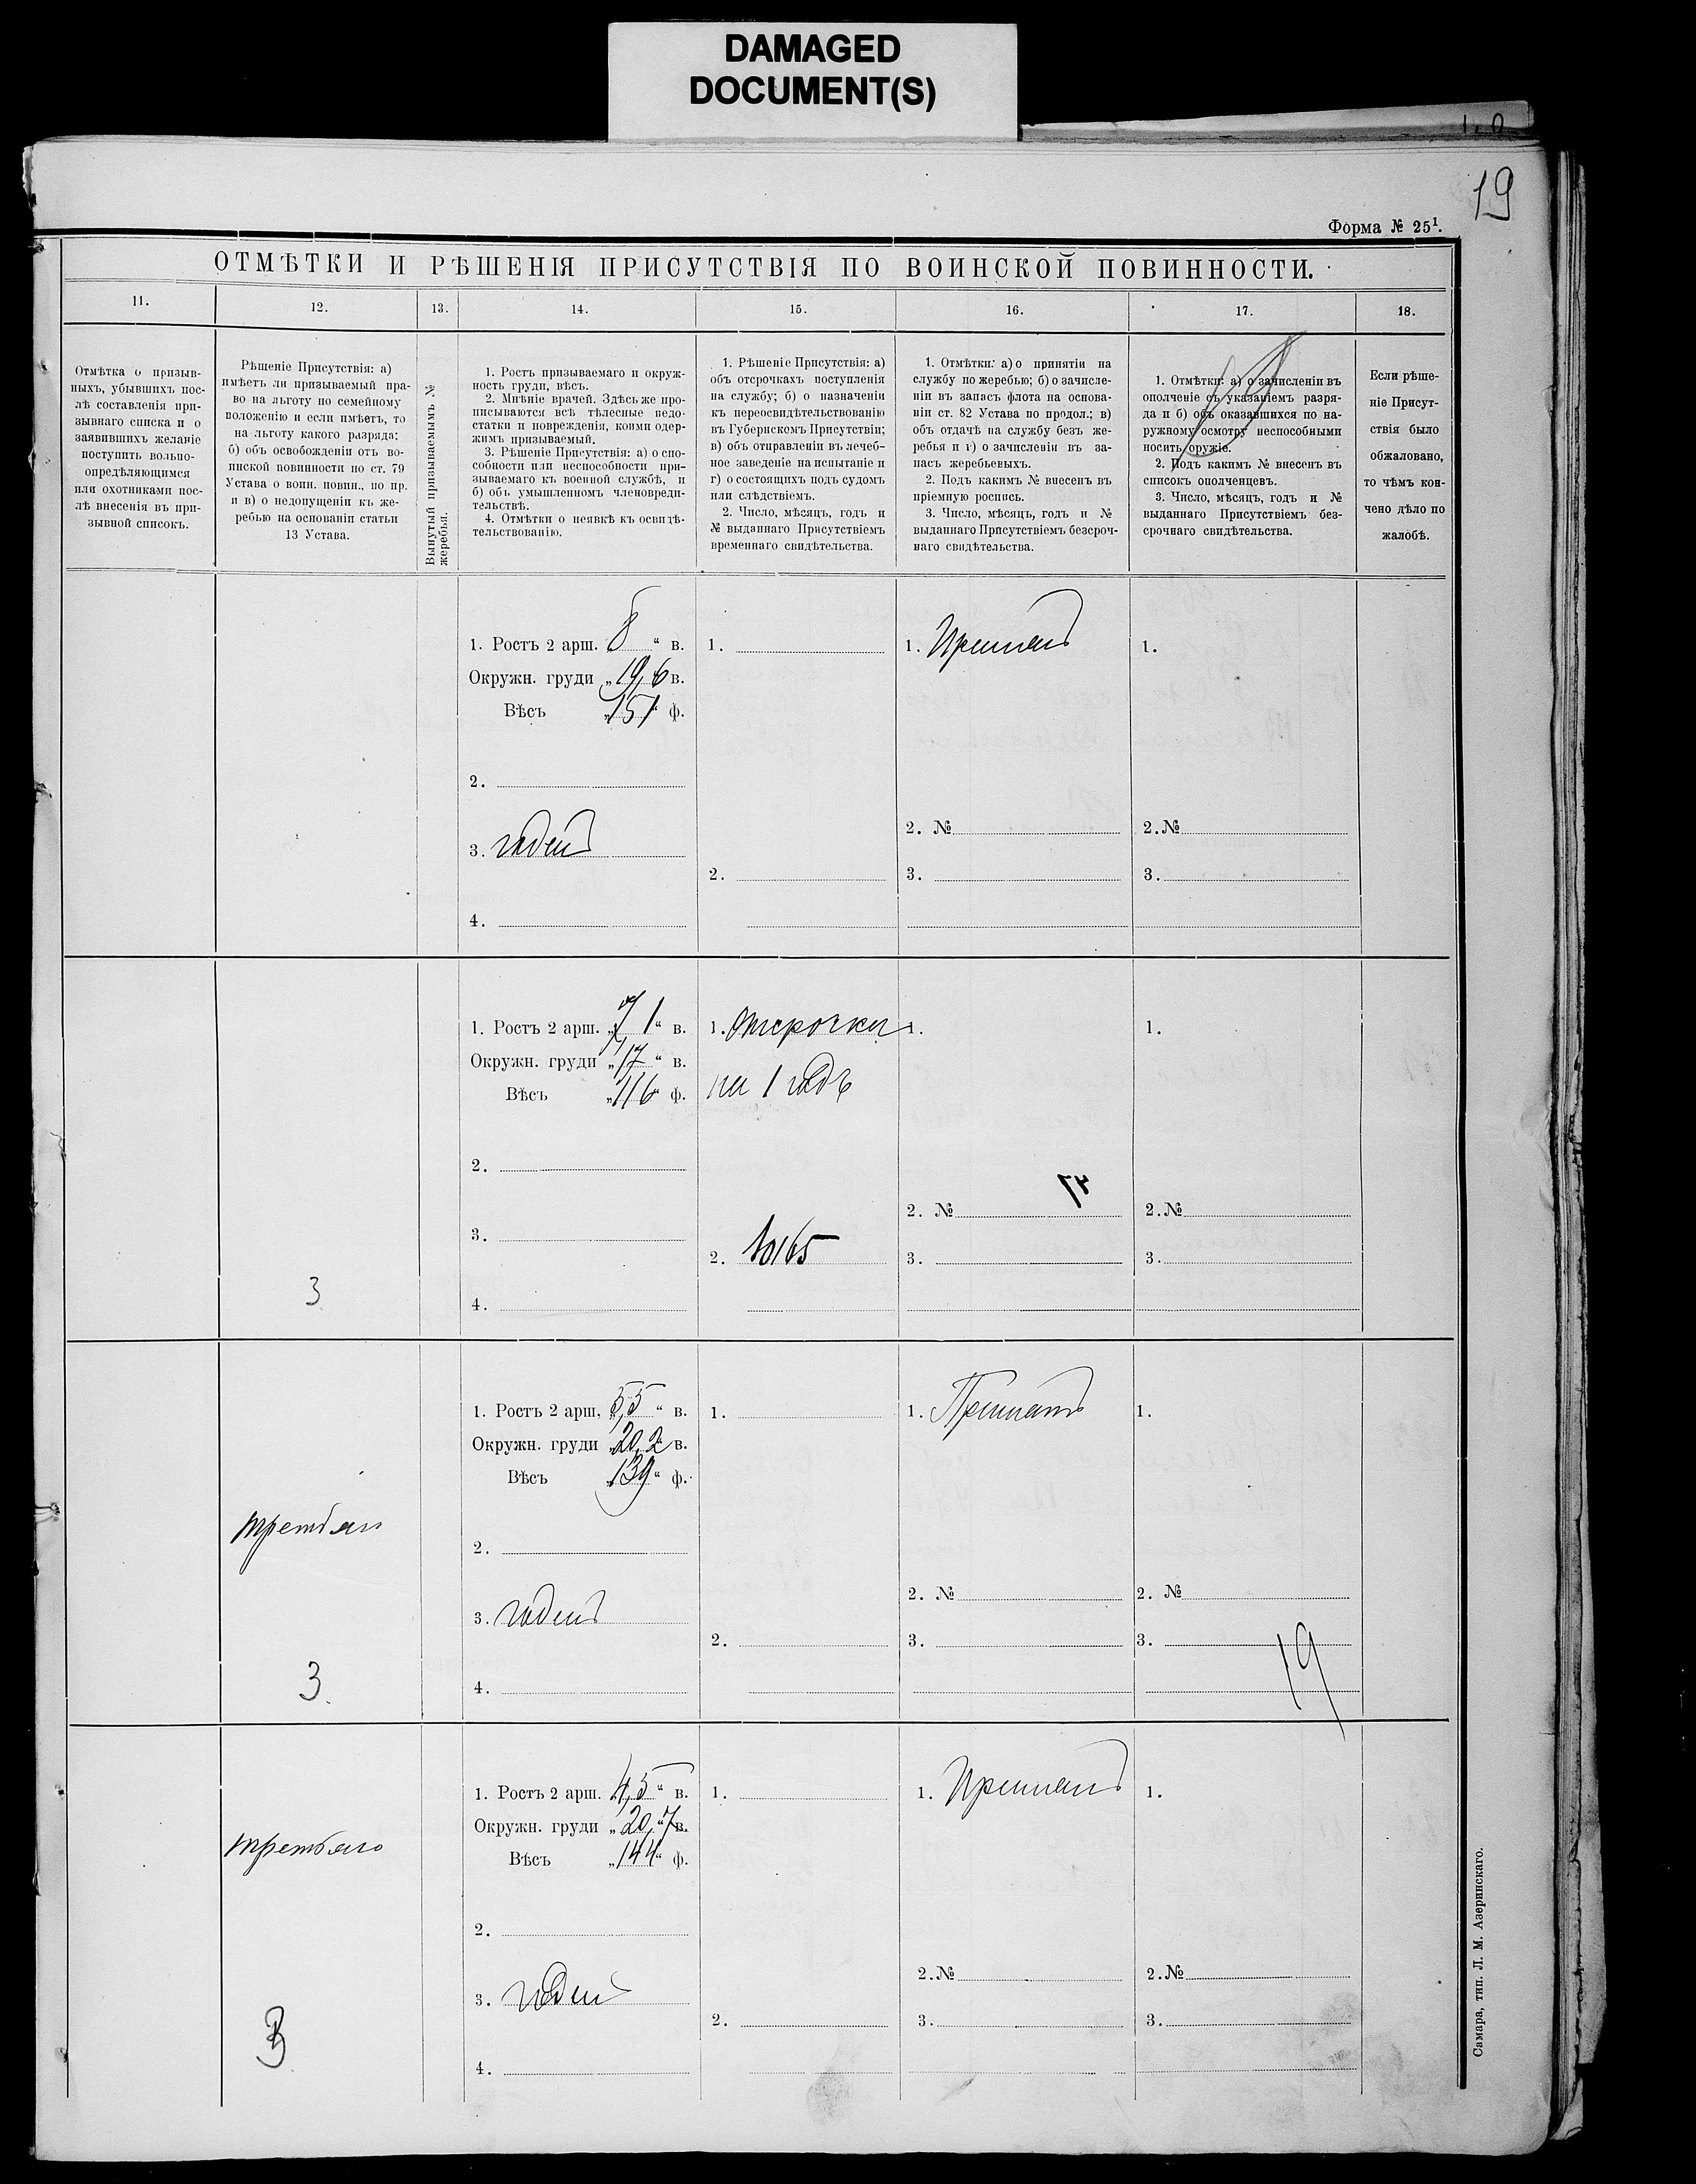 DAMAGED
DOCUMENT(S)
19
Форма № 25¹.
ОТМѢТКИ И РѢШЕНІЯ ПРИСУТСТВІЯ ПО ВОИНСКОЙ ПОВИННОСТИ.
11.
12.
13.
14.
15.
16.
17.
18.
Отмѣтка о призыв-
ныхъ, убывшихъ пос-
лѣ составленія при-
зывнаго списка и о
заявившихъ желаніе
поступить вольно-
опредѣляющимся
или охотниками пос-
лѣ внесенія въ при-
зывной списокъ.
Рѣшеніе Присутствія: а)
имѣетъ ли призываемый пра-
во на льготу по семейному
положенію и если имѣетъ, то
на льготу какого разряда;
б) объ освобожденіи отъ во-
инской повинности по ст. 79
Устава о воин. повин., по пр.
и в) о недопущеніи къ же-
ребью на основаніи статьи
13 Устава.
Вынутый призываемымъ №
жеребья.
1. Ростъ призываемаго и окруж-
ность груди, вѣсъ.
2. Мнѣніе врачей. Здѣсь же про-
писываются всѣ тѣлесные недо-
статки и поврежденія, коими одер-
жимъ призываемый.
3. Рѣшеніе Присутствія: а) о спо-
собности или неспособности при-
зываемаго къ военной службѣ, и
б) объ умышленномъ членовреди-
тельствѣ.
4. Отмѣтки о неявкѣ къ освидѣ-
тельствованію.
1. Рѣшеніе Присутствія: а)
объ отсрочкахъ поступленія
на службу; б) о назначеніи
къ переосвидѣтельствованію
въ Губернскомъ Присутствіи;
в) объ отправленіи въ лечеб-
ное заведеніе на испытаніе и
г) о состоящихъ подъ судомъ
или слѣдствіемъ.
2. Число, мѣсяцъ, годъ и
№ выданнаго Присутствіемъ
временнаго свидѣтельства.
1. Отмѣтки: а) о принятіи на
службу по жеребью; б) о зачисле-
ніи въ запасъ флота на основа-
ніи ст. 82 Устава по продол.; в)
объ отдачѣ на службу безъ же-
ребья и г) о зачисленіи въ за-
пасъ жеребьевыхъ.
2. Подъ какимъ № внесенъ въ
пріемную роспись.
3. Число, мѣсяцъ, годъ и №
выданнаго Присутствіемъ безсроч-
наго свидѣтельства.
1. Отмѣтки: а) о зачисленіи въ
ополченіе съ указаніемъ разря-
да и б) объ оказавшихся по на-
ружному осмотру неспособными
носить оружіе.
2. Подъ какимъ № внесенъ въ
списокъ ополченцевъ.
3. Число, мѣсяцъ, годъ и №
выданнаго Присутствіемъ без-
срочнаго свидѣтельства.
Если рѣше-
ніе Присут-
ствія было
обжаловано,
то чѣмъ кон-
чено дѣло по
жалобѣ.
1. Ростъ 2 арш. 8 " в.
Окружн. груди „ 19,6 в.
Вѣсъ „ 151 " ф.
2.
3. годенъ
4.
1.
2.
1. Принятъ
2. №
3.
1.
2. №
3.
3
1. Ростъ 2 арш. „ 7 1 " в.
Окружн. груди „ 17 " в.
Вѣсъ „ 116 " ф.
2.
3.
4.
1. Отсрочка
на 1 годъ
2. 10165
1.
47
2. №
3.
1.
2. №
3.
третьяго
3
1. Ростъ 2 арш. 5,5 " в.
Окружн. груди „ 20,2 в.
Вѣсъ „ 139 " ф.
2.
3. годенъ
4.
1.
2.
1. Принятъ
2. №
3.
1.
2. №
3.
19
третьяго
3
1. Ростъ 2 арш. 4,5 " в.
Окружн. груди „ 20,7 в.
Вѣсъ „ 144 " ф.
2.
3. годенъ
4.
1.
2.
1. Принятъ
2. №
3.
1.
2. №
3.
Самара, тип. Л. М. Азеринскаго.